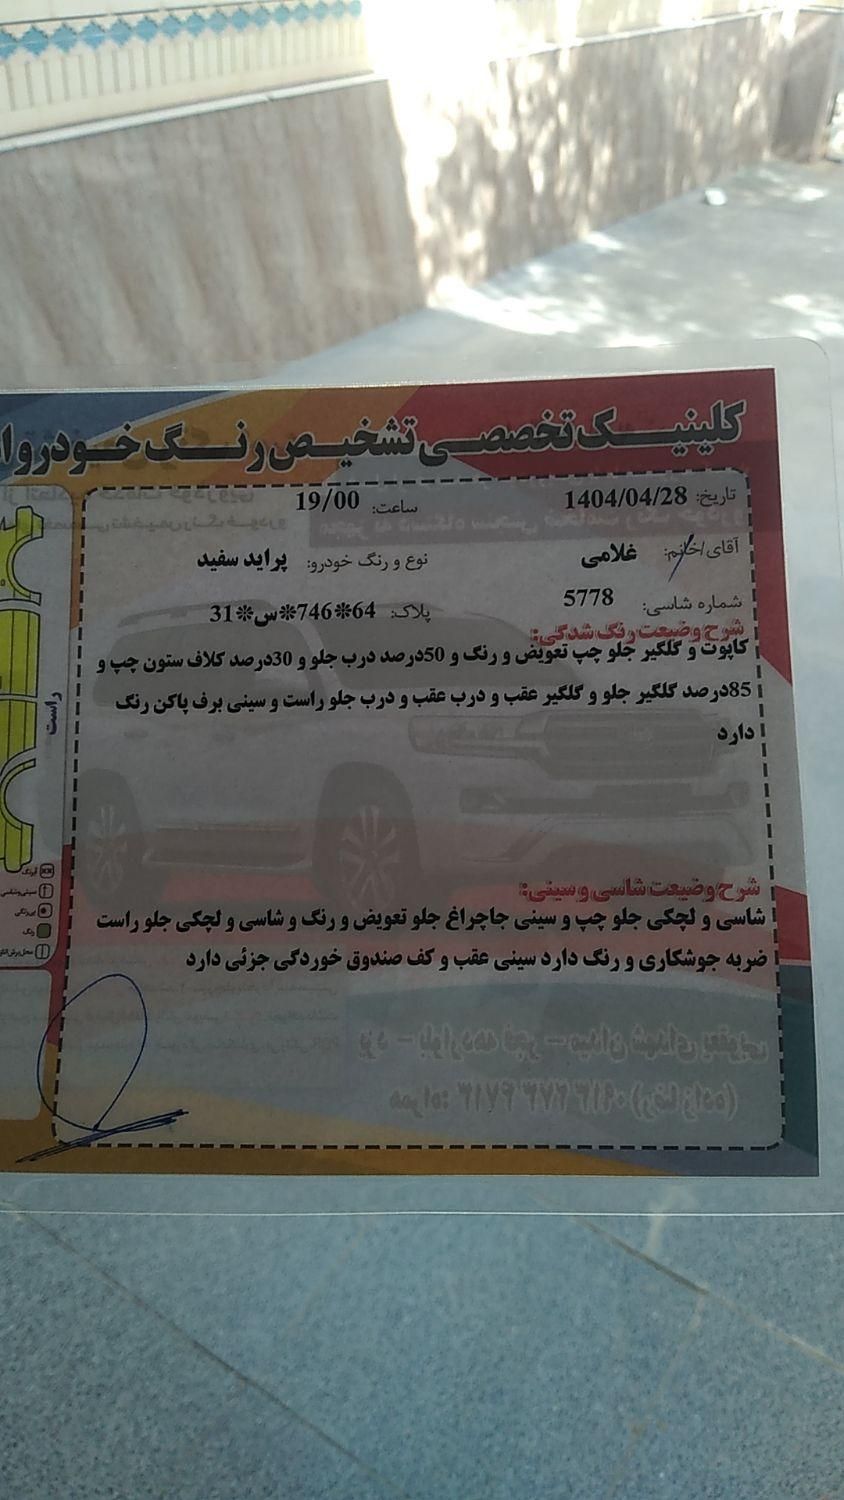 کلینیک تخصصی تشخیص رنگ خودرو
تاریخ: 1404/04/28 ساعت: 19/00
آقای/خانم: غلامی نوع و رنگ خودرو: پراید سفید
شماره شاسی: 5778 پلاک: 64*746*س*31
شرح وضعیت رنگ شدگی:
کاپوت و گلگیر جلو چپ تعویض و رنگ و 50درصد درب جلو و 30درصد کلاف ستون چپ و
85درصد گلگیر جلو و گلگیر عقب و درب عقب و درب جلو راست و سینی برف پاکن رنگ
دارد
شرح وضعیت شاسی و سینی:
شاسی و لچکی جلو چپ و سینی جاچراغ جلو تعویض و رنگ و شاسی و لچکی جلو راست
ضربه جوشکاری و رنگ دارد سینی عقب و کف صندوق خوردگی جزئی دارد
راست